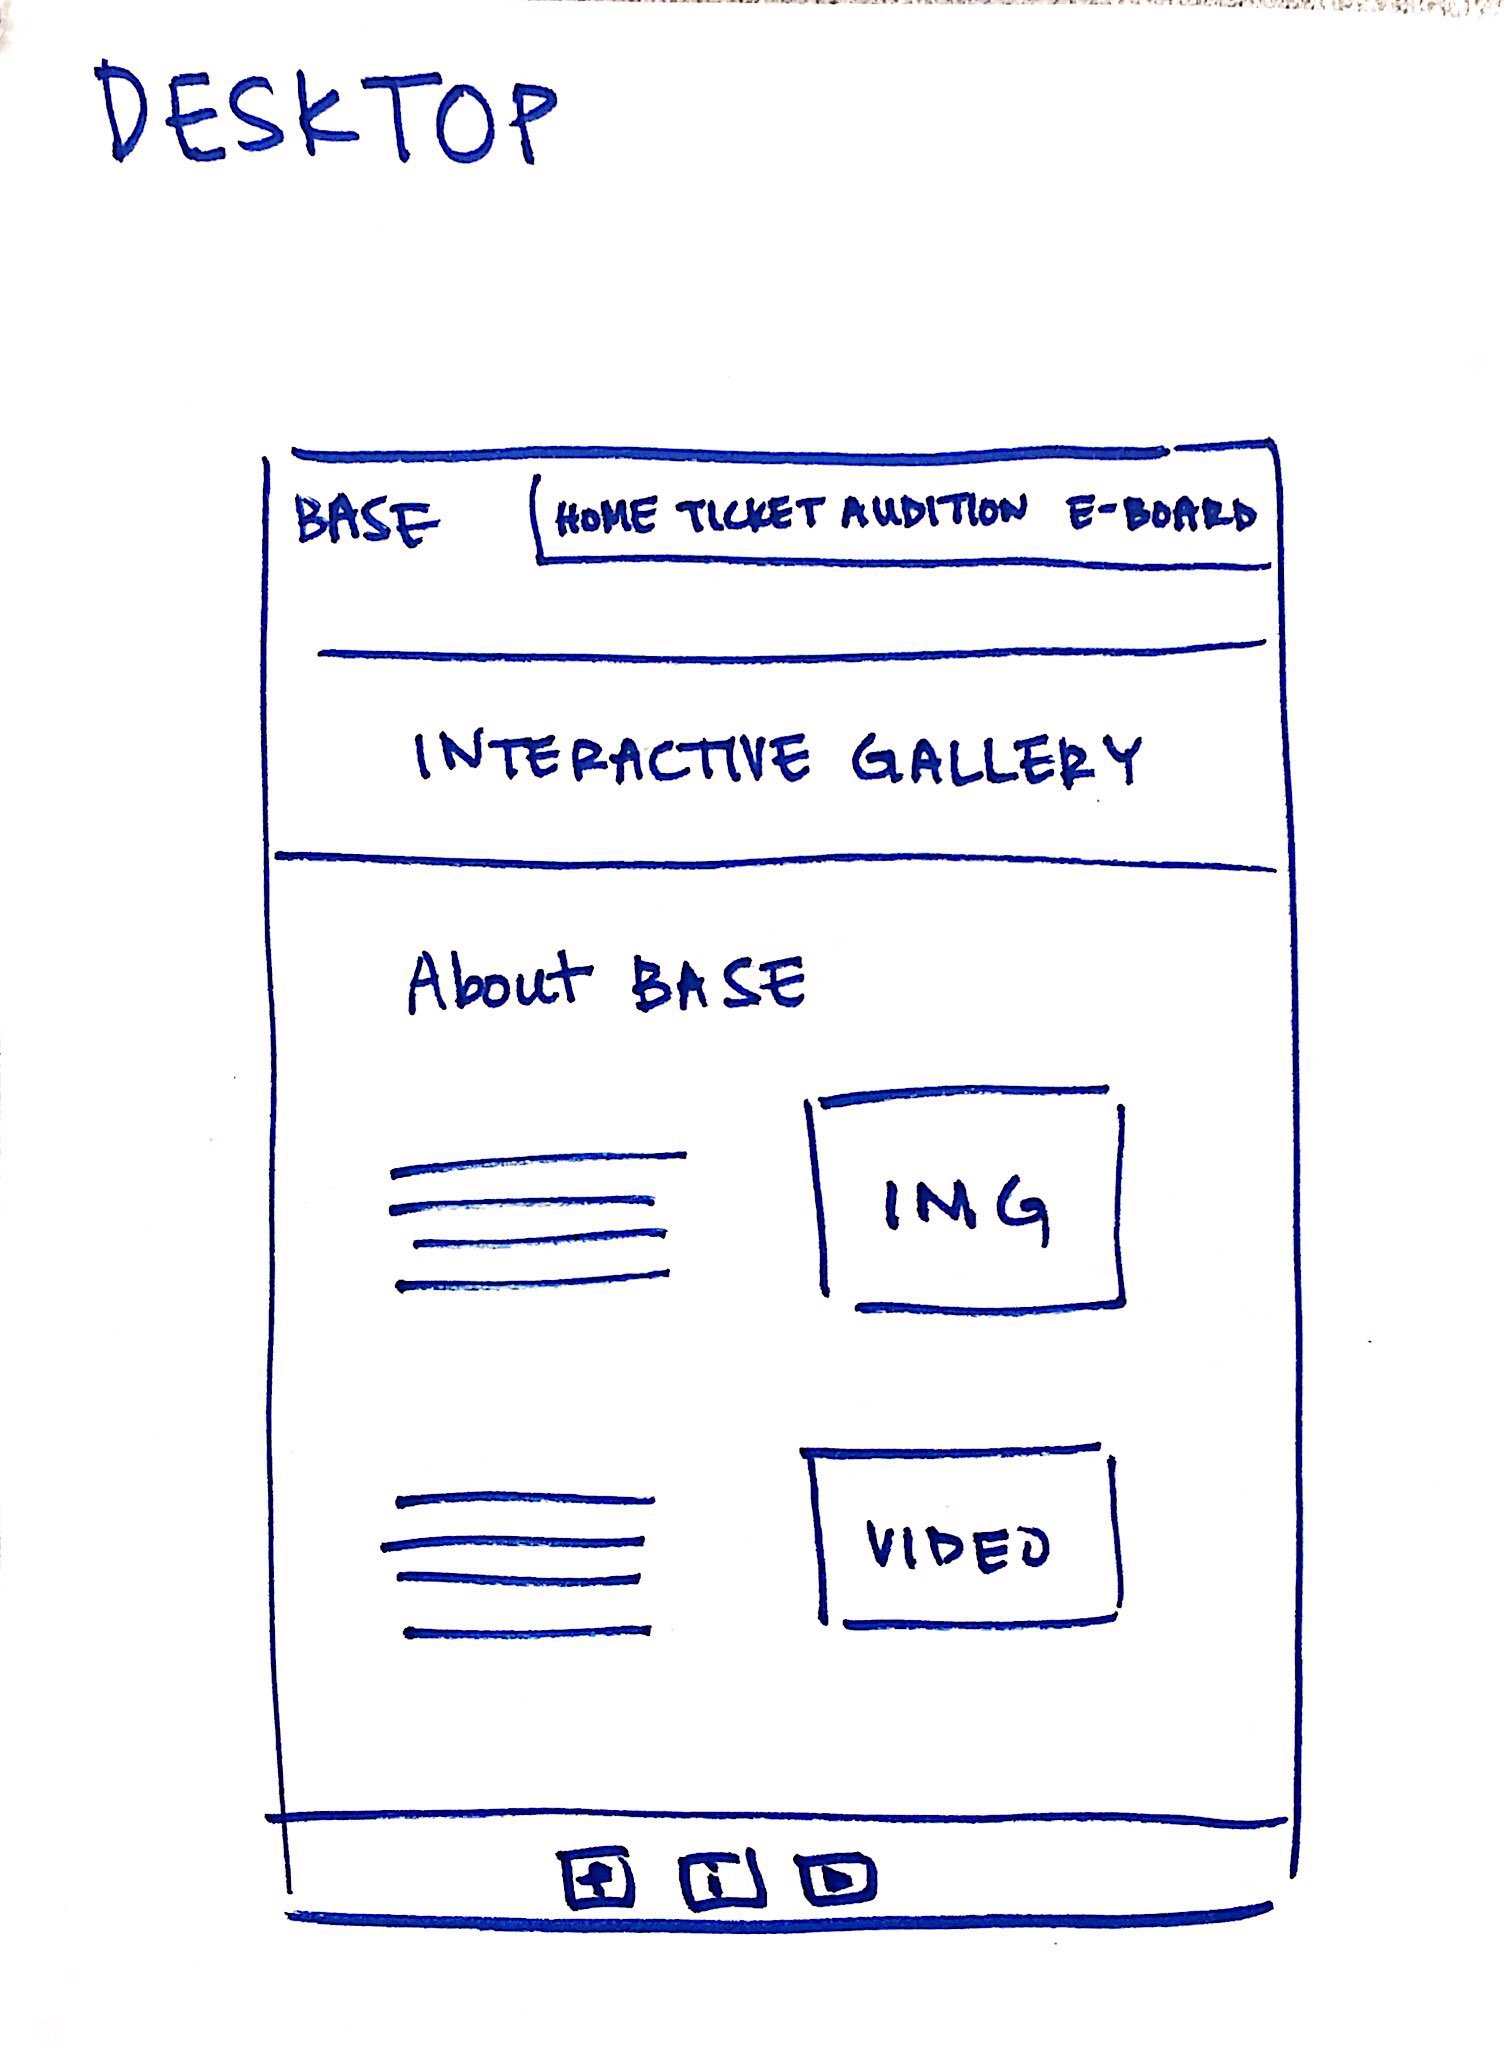 DESKTOP
BASE HOME TICKET AUDITION E-BOARD
INTERACTIVE GALLERY
About BASE
IMG
VIDEO